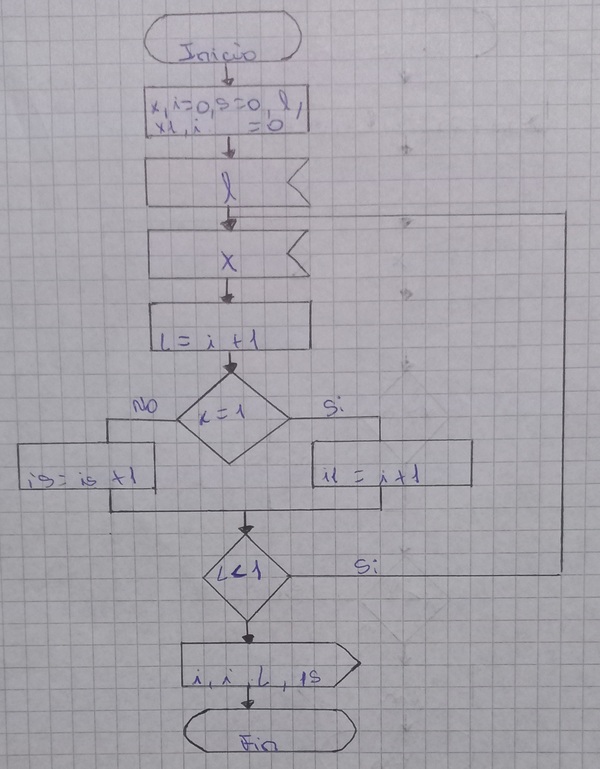 Inicio
x, i=0, s=0, l,
x1, i =0
l
x
L = i +1
No
x = 1
Si
is = is +1
i1 = i+1
L<1
Si
i, i, L, 1S
Fin